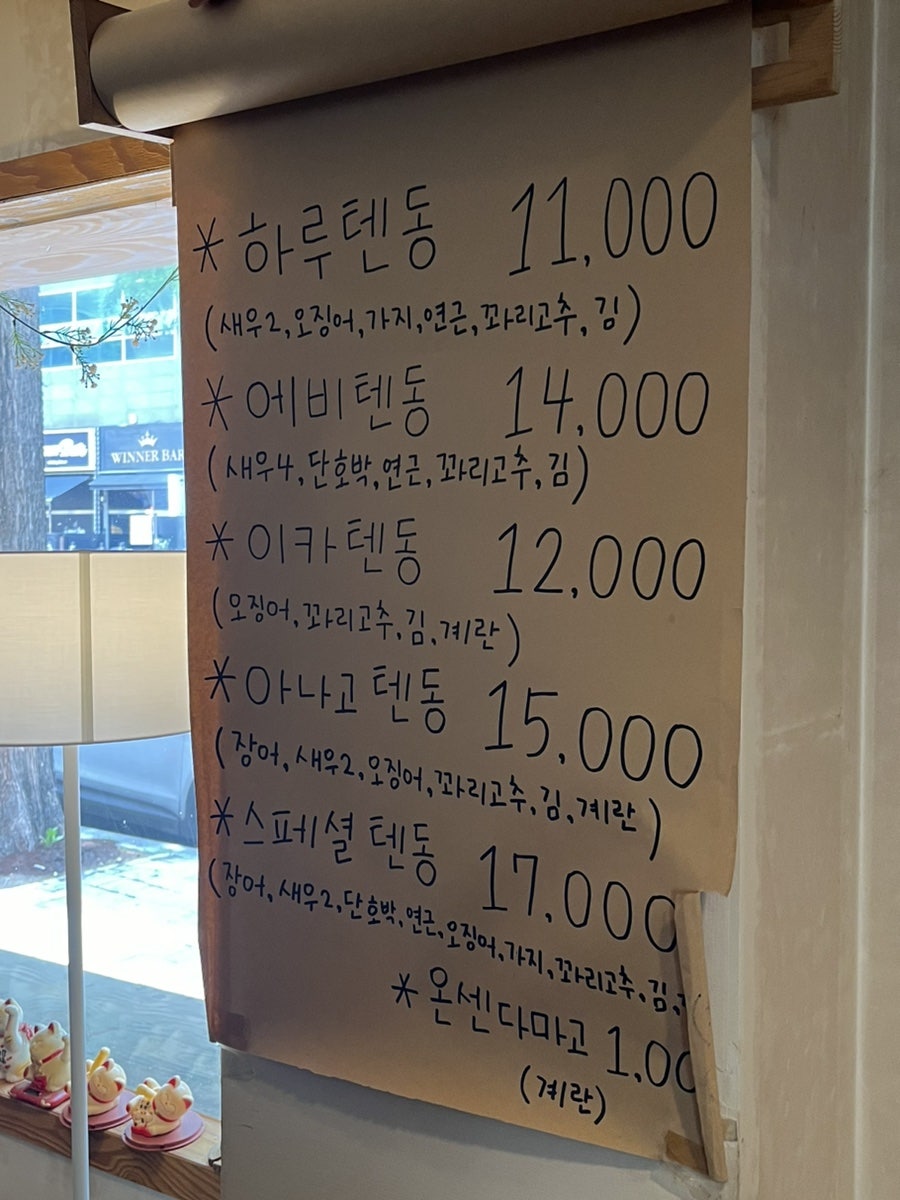 * 하루텐동 11,000
(새우2, 오징어, 가지, 연근, 꽈리고추, 김)
* 에비텐동 14,000
(새우4, 단호박, 연근, 꽈리고추, 김)
* 이카텐동 12,000
(오징어, 꽈리고추, 김, 계란)
* 아나고텐동 15,000
(장어, 새우2, 오징어, 꽈리고추, 김, 계란)
* 스페셜텐동 17,000
(장어, 새우2, 단호박, 연근, 오징어, 가지, 꽈리고추, 김,
* 온센다마고 1.00
(계란)
WINNER BAR